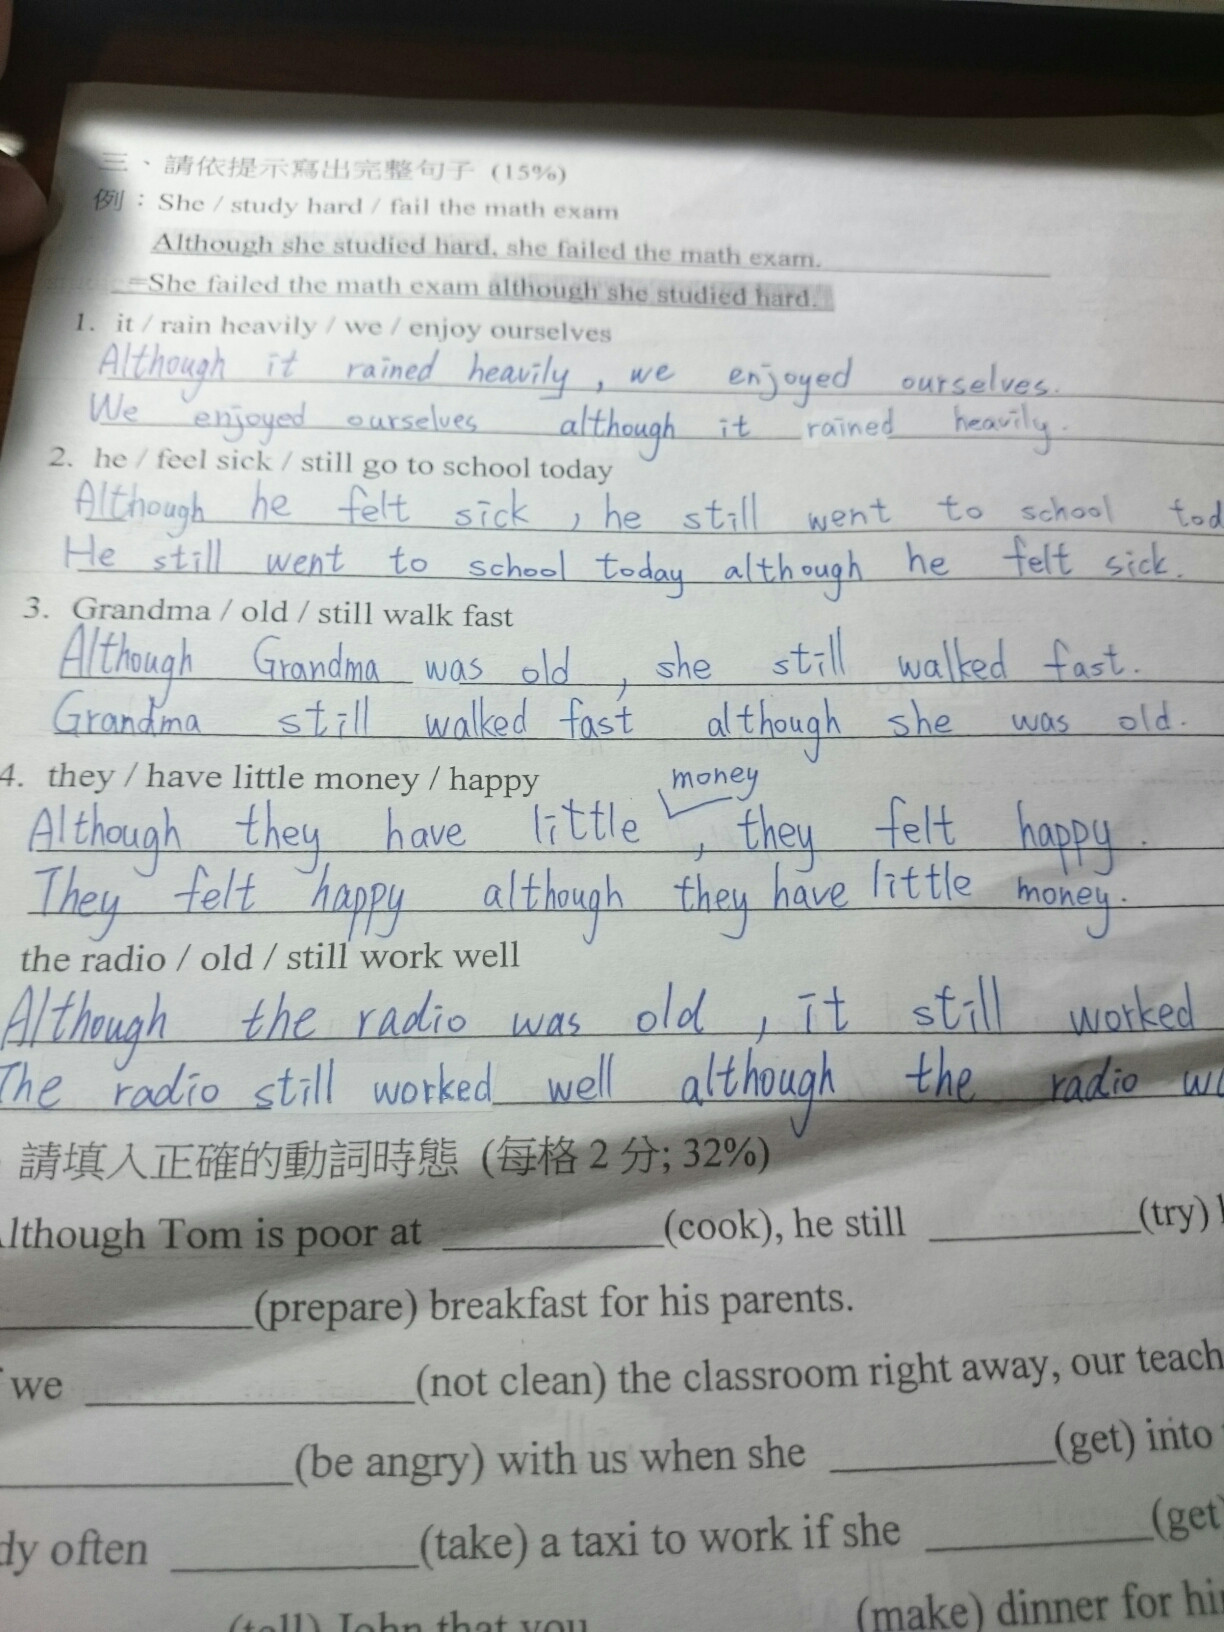 三、請依提示寫出完整句子 (15%)
例：She / study hard / fail the math exam
Although she studied hard, she failed the math exam.
=She failed the math exam although she studied hard.
1. it / rain heavily / we / enjoy ourselves
Although it rained heavily, we enjoyed ourselves.
We enjoyed ourselves although it rained heavily.
2. he / feel sick / still go to school today
Although he felt sick, he still went to school tod
He still went to school today although he felt sick.
3. Grandma / old / still walk fast
Although Grandma was old, she still walked fast.
Grandma still walked fast although she was old.
4. they / have little money / happy
money
Although they have little, they felt happy.
They felt happy although they have little money.
the radio / old / still work well
Although the radio was old, it still worked
The radio still worked well although the radio
請填入正確的動詞時態 (每格 2 分; 32%)
lthough Tom is poor at ________(cook), he still ________(try)
________(prepare) breakfast for his parents.
we ________(not clean) the classroom right away, our teach
________(be angry) with us when she ________(get) into
dy often ________(take) a taxi to work if she ________(get)
(tell) John that you ________(make) dinner for